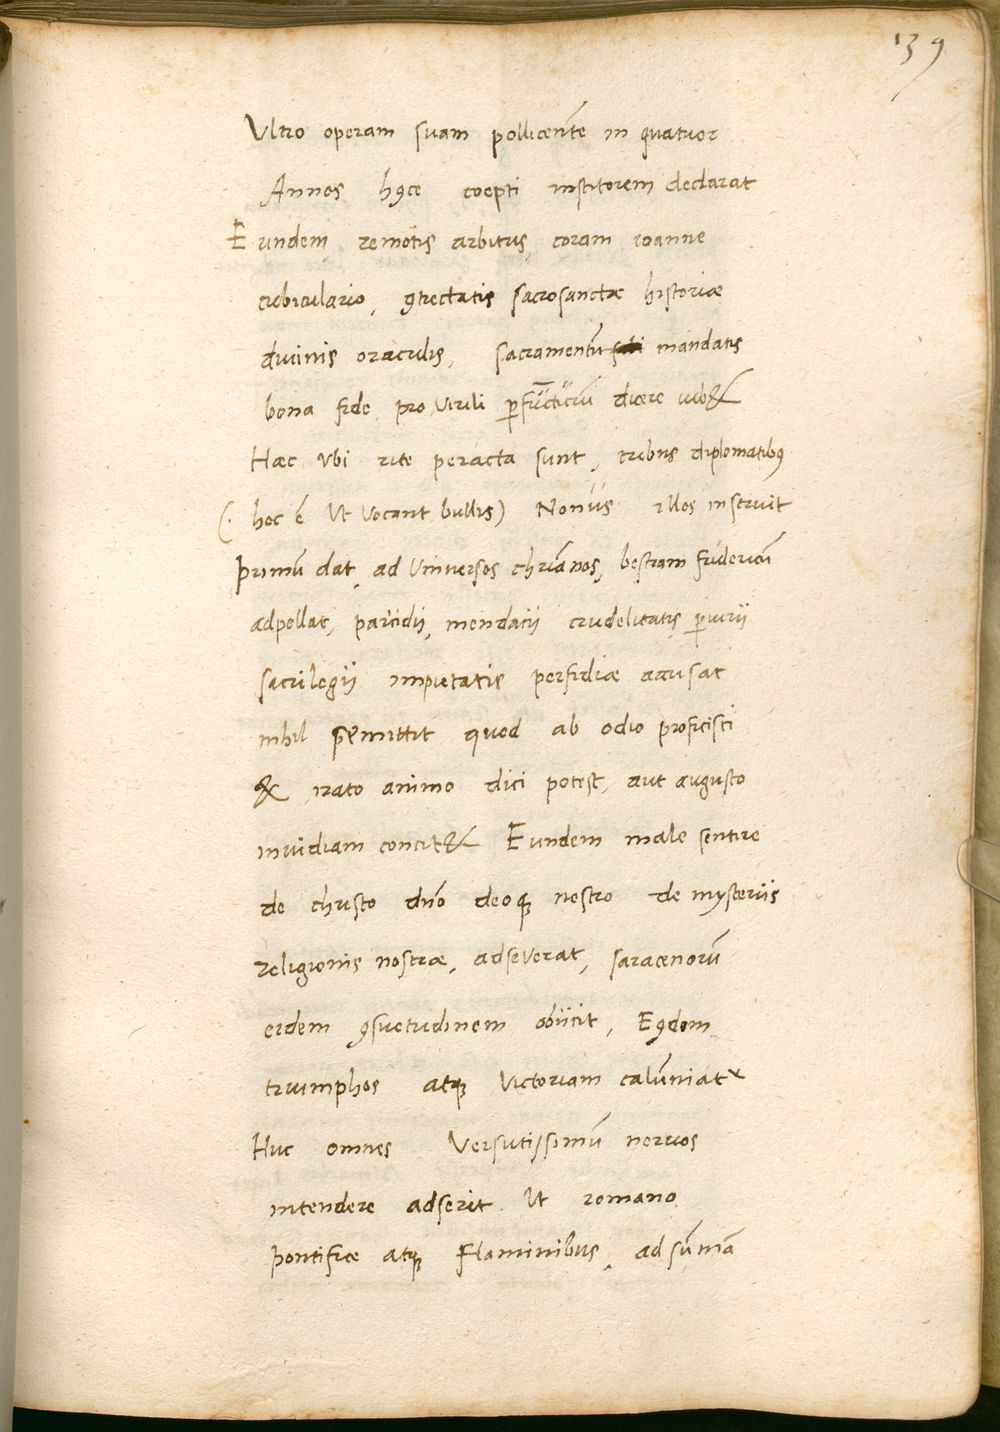 139
Vltro operam suam pollicente in quatuor
Annos hęce coepti institorem declarat
Eundem remotis arbitris, coram ioanne
cubiculario, ꝯtrectatis sacrosanctæ historiæ
divinis oraculis, sacramentū mandatis
bona fide pro virili ꝑfūcturū dicere iub&
Hæc Vbi rite peracta sunt, tribus diplomatibꝯ
(. hoc ē Vt Vocant bullis) Nonus illos instruit
Primū dat, ad Vniuersos christianos, bestiam fridericū
adpellat, paricidij, mendacij crudelitatis ꝑiurij
sacrilegij imputatis perfidiæ accusat
nihil p̄emittit quod ab odio proficisci
& irato animo dici potest, aut augusto
inuidiam concit& Eundem male sentire
de christo dn̄o deoqꝫ nostro de mysteriis
religionis nostræ, adseVerat, saracenorū
eidem ꝯsuetudinem obijcit, Eꝯdem
triumphos atqꝫ Victoriam calūniat
Huc omnes Versutissimū neruos
intendere adserit Vt romano
pontifice atqꝫ Flaminibus, ad sūmā